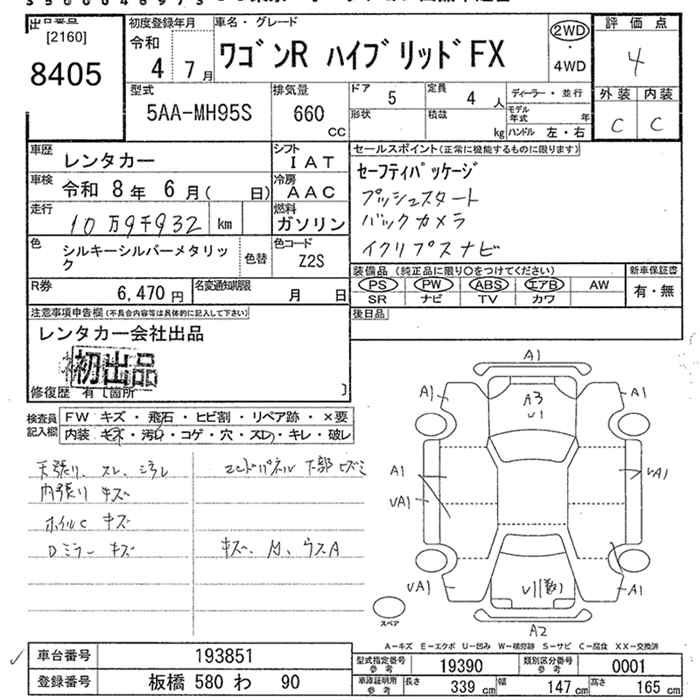 出品番号
[2160]
8405
初度登録年月
令和
4 7月
車名・グレード
ワゴンR ハイブリッドFX
2WD
・
4WD
評価点
4
外装 内装
C C
型式
5AA-MH95S
排気量
660
CC
ドア 5
定員 4 人
形状
積載 kg
ディーラー・並行
モデル年式 年
ハンドル 左・右
車歴
レンタカー
シフト
IAT
車検 令和 8年 6月( 日)
冷房
AAC
走行 10万9千932 km
燃料
ガソリン
色
シルキーシルバーメタリック
色替
色コード
Z2S
R券
6,470円
名変通知期限
月 日
セールスポイント(正常に機能するものに限ります)
セーフティパッケージ
プッシュスタート
バックカメラ
イクリプスナビ
装備品(純正品に限り○をつけてください)
PS PW ABS エアB AW
SR ナビ TV カワ
新車保証書
有・無
後日品
注意事項申告欄(不具合内容等は具体的に記入して下さい)
レンタカー会社出品
初出品
修復歴 有〔箇所 〕
検査員
記入欄
FW キズ・飛石・ヒビ割・リペア跡・×要
内装 キズ・汚レ・コゲ・穴・スレ・キレ・破レ
天張り、スレ、
内張り キズ
ホイルC キズ
Dミラー キズ
エンドパネル下部ヒズミ
キズ、M、ウスA
A1
A3
U1
A1
A1
A1
UA1
UA1
UA1
A1
U1(数)
A2
スペア
A-キズ E-エクボ U-凹み W-補修跡 S-サビ C-腐食 XX-交換済
車台番号 193851
登録番号 板橋 580 わ 90
型式指定番号
参考
19390
類別区分番号
参考
0001
車庫証明用
参考
長さ 339 cm
幅 147 cm
高さ 165 cm